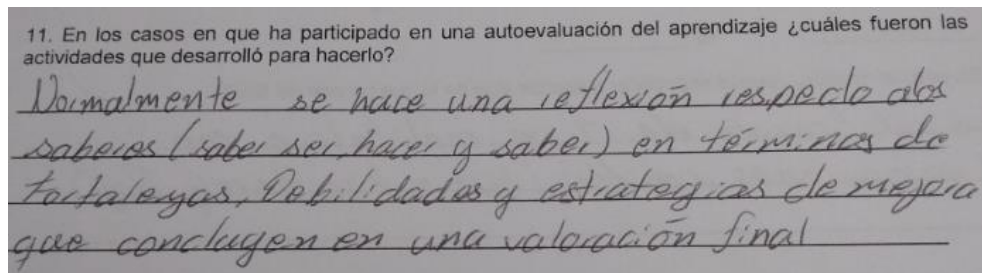 11. En los casos en que ha participado en una autoevaluación del aprendizaje ¿cuáles fueron las
actividades que desarrolló para hacerlo?
Normalmente se hace una reflexión respecto a los
saberes (saber ser, hacer y saber) en términos de
fortalezas, Debilidades y estrategias de mejora
que conclugen en una valoración final